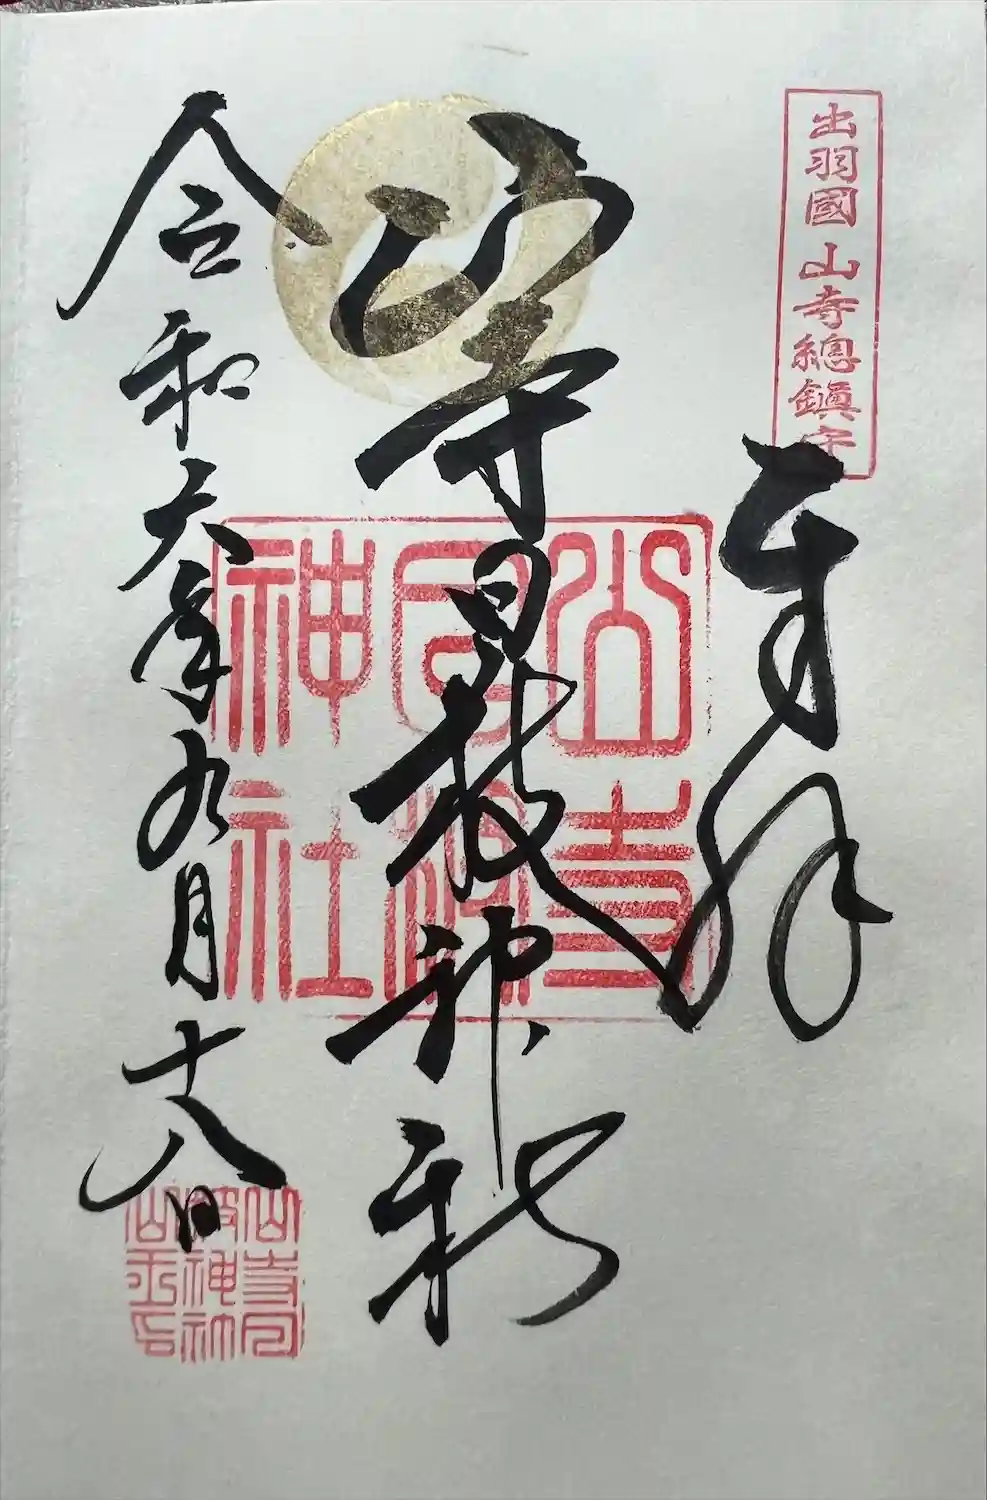 出羽國 山寺總鎮守
奉拜
山寺日枝神社
令和六年九月十八日
山寺日枝神社